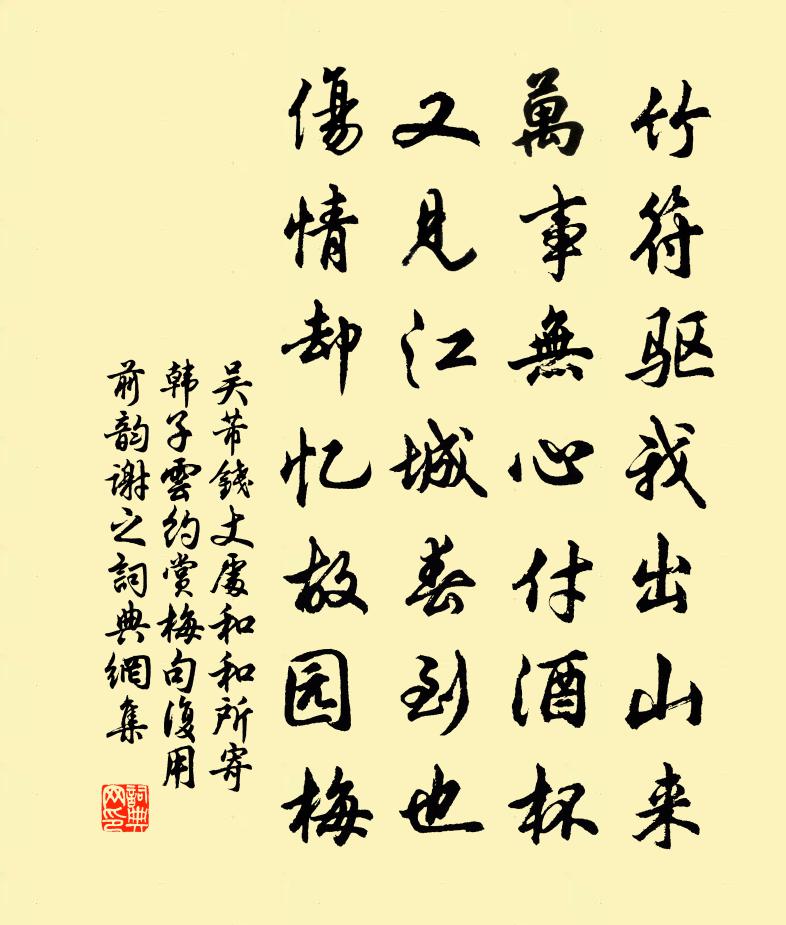 竹符驱我出山来
萬事無心付酒杯
又見江城春到也
傷情却忆故园梅
吴芾錢丈屡和和所寄
韩子雲約赏梅句復用
前韵谢之詞典網集
詞典网印